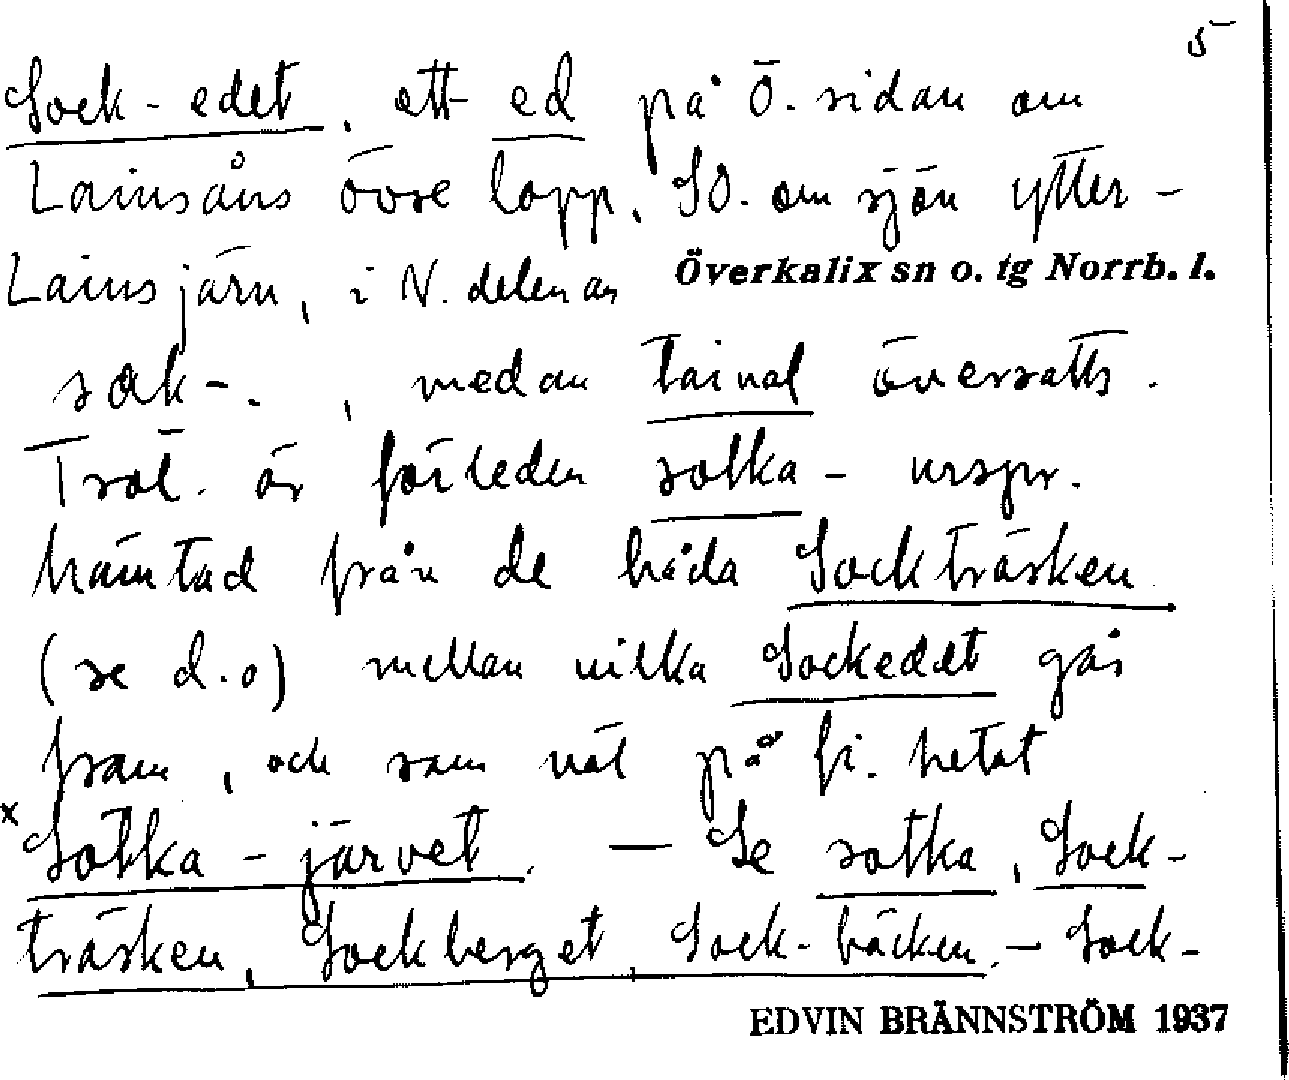 5
Sock-edet, ett ed på Ö. sidan om
Lainsåns övre lopp, SO. om sjön Ytter-
Lainsjärv, i N. delen av Överkalix sn o. tg Norrb. l.
sok-. , medan taival översatts.
Trol. är förleden sotka- urspr.
hämtad från de båda Sockträsken
(se d.o) mellan vilka Sockedet går
fram, och som väl på fi. hetat
x Sotka-järvet. — Se sotka, Sock-
träsken, Sockberget, Sock-bäcken. — Sock-
EDVIN BRÄNNSTRÖM 1937